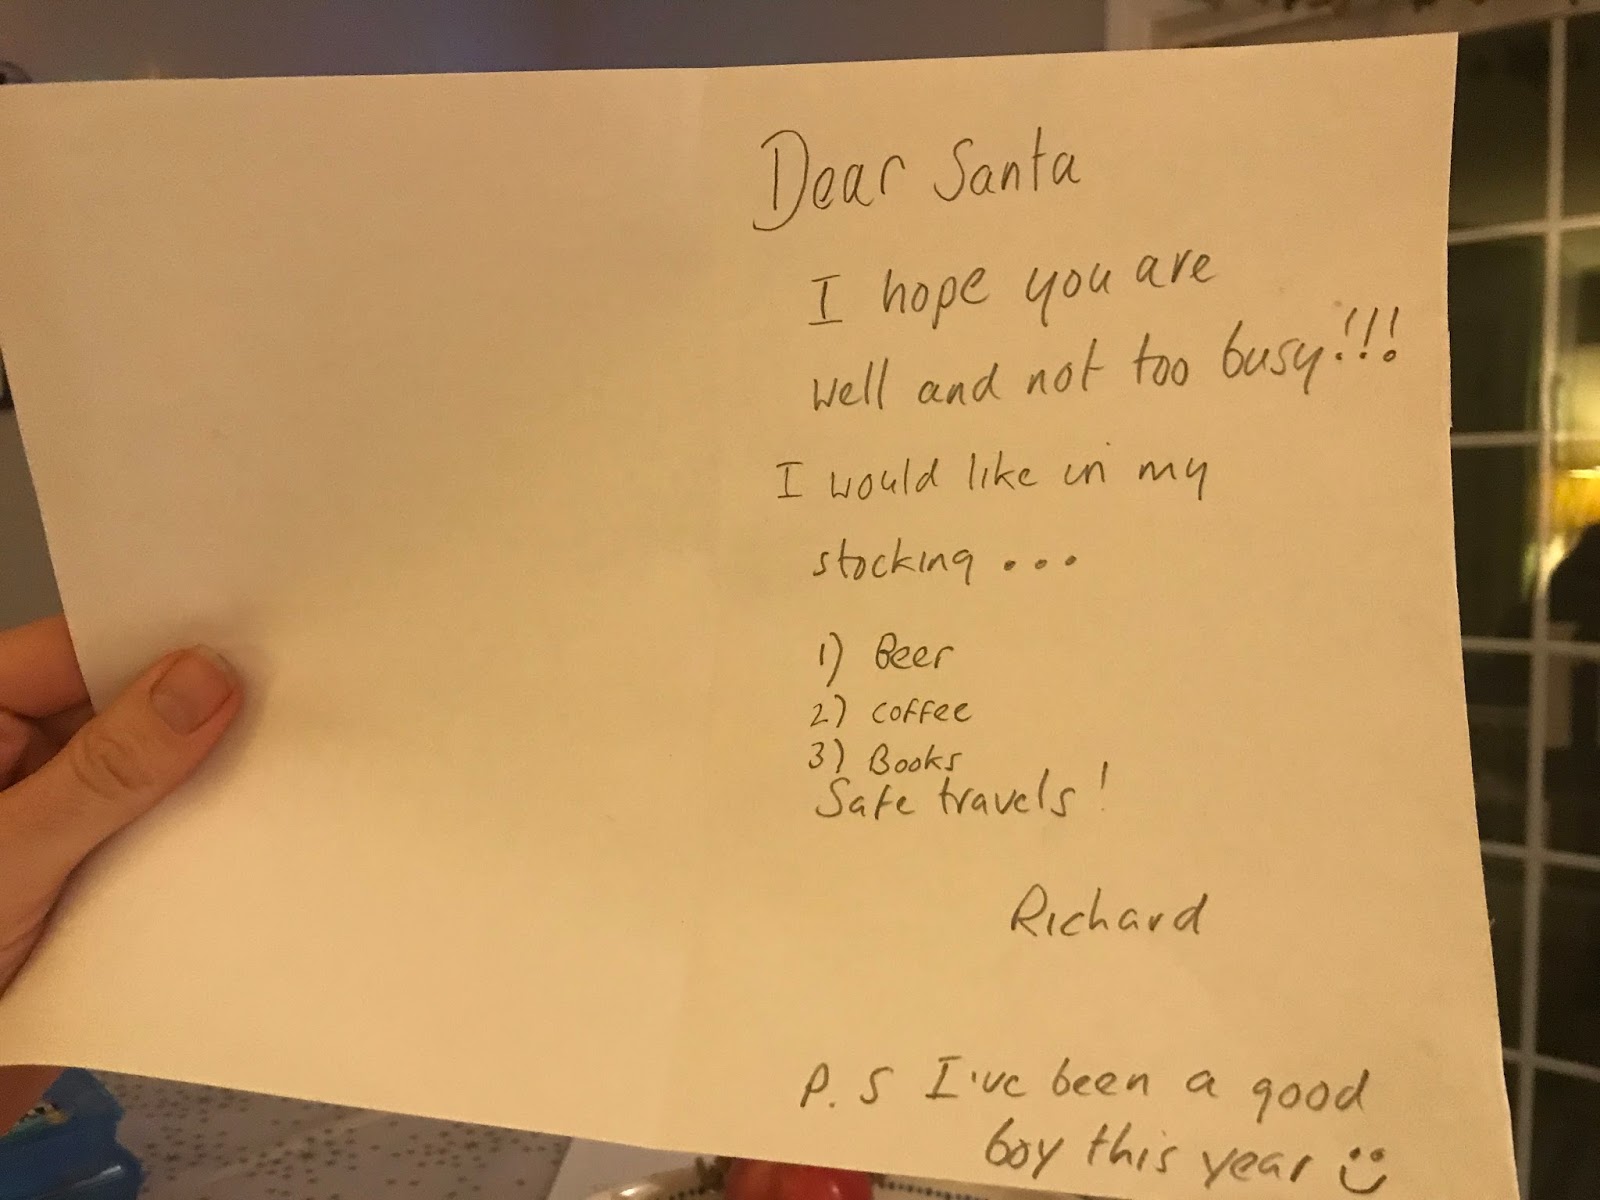 Dear Santa
I hope you are
well and not too busy!!!
I would like in my
stocking ...
1) Beer
2) coffee
3) Books
Safe travels!
Richard
P. S I've been a good
boy this year :)